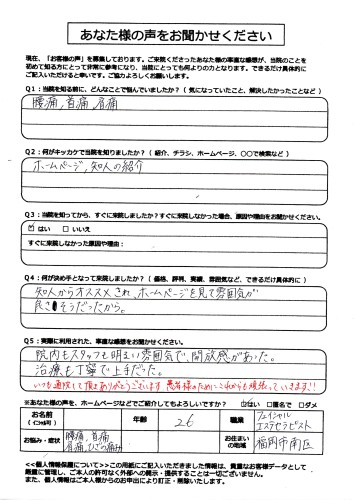 あなた様の声をお聞かせください
現在、「お客様の声」を募集しております。ご来院くださったあなた様の率直な感想が、当院のことを
初めて知る方にとって非常に参考になり、当院にとっても何よりの力となります。できるだけ具体的に
ご記入いただけると幸いです。ご協力よろしくお願いします。
Q1：当院を知る前に、どんなことで悩んでいましたか？（気になっていたこと、解決したかったことなど）
腰痛,首痛,肩痛
Q2：何がキッカケで当院を知りましたか？（紹介、チラシ、ホームページ、○○で検索など）
ホームページ,知人の紹介
Q3：当院を知ってから、すぐに来院しましたか？すぐ来院しなかった場合、原因や理由をお聞かせください。
☑ はい □ いいえ
すぐに来院しなかった原因や理由：
Q4：何が決め手となって来院しましたか？（価格、評判、実績、雰囲気など、できるだけ具体的に）
知人からオススメされ、ホームページを見て雰囲気が
良さそうだったから。
Q5：実際に利用された、率直な感想をお聞かせください。
院内もスタッフも明るい雰囲気で、開放感があった。
治療も丁寧で上手だった。
いつも通院して頂きありがとうございます 患者様のために
※あなた様の声を、ホームページなどでご紹介してもよろしいですか？ ☑はい □匿名 □ダメ
お名前
(ｲﾆｼｬﾙ可)
年齢 26
職業 フェイシャル
エステセラピスト
お悩み・症状 腰痛,首痛,
肩痛,ひざの痛み
お住まい
の地域 福岡市南区
<<個人情報保護について>>この用紙にご記入いただきました情報は、貴重なお客様データとして
厳重に管理し、ご本人の許可なく外部への開示・提供することは一切ございません。
また、個人情報はご本人様からのお申出により訂正・削除いたします。